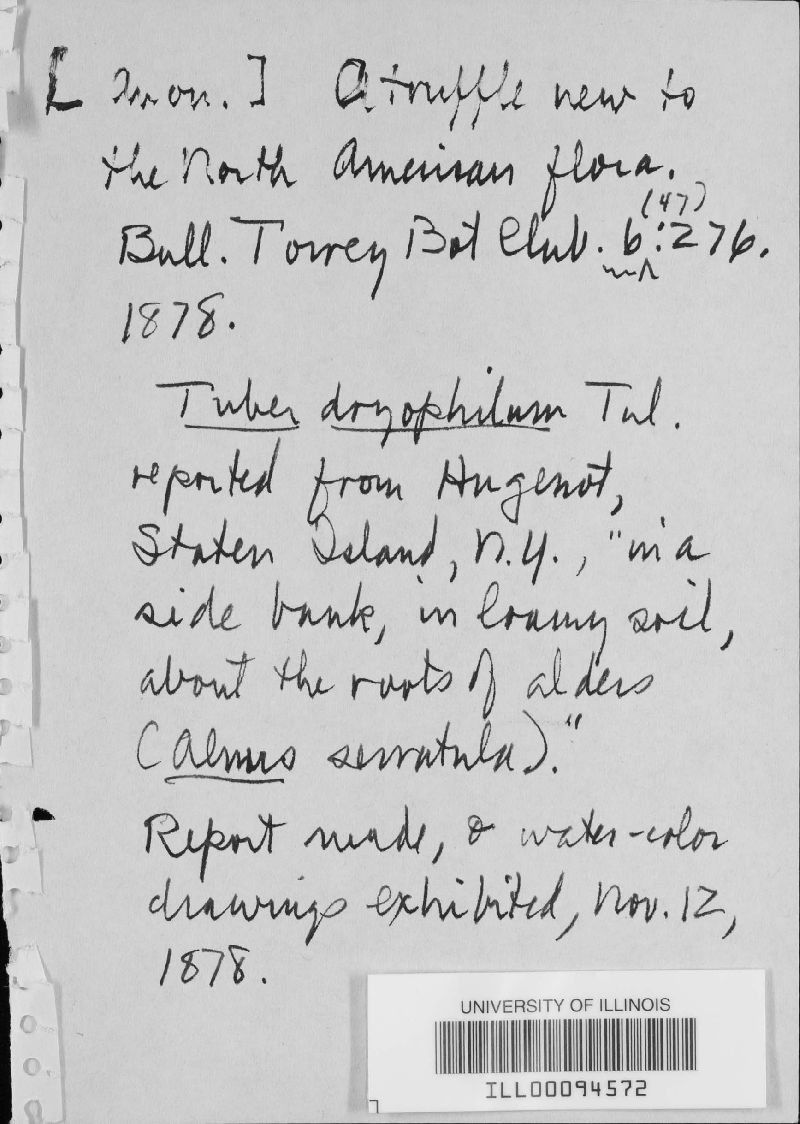 [Anon.] A truffle new to
the North American flora.
(47)
Bull. Torrey Bot Club. 6:276.
1878.
Tuber dryophilum Tul.
reported from Hugenot,
Staten Island, N.Y., "in a
side bank, in loamy soil,
about the roots of alders
(Alnus serratula)."
Report made, & water-color
drawings exhibited, Nov. 12,
1878.
UNIVERSITY OF ILLINOIS
ILL00094572